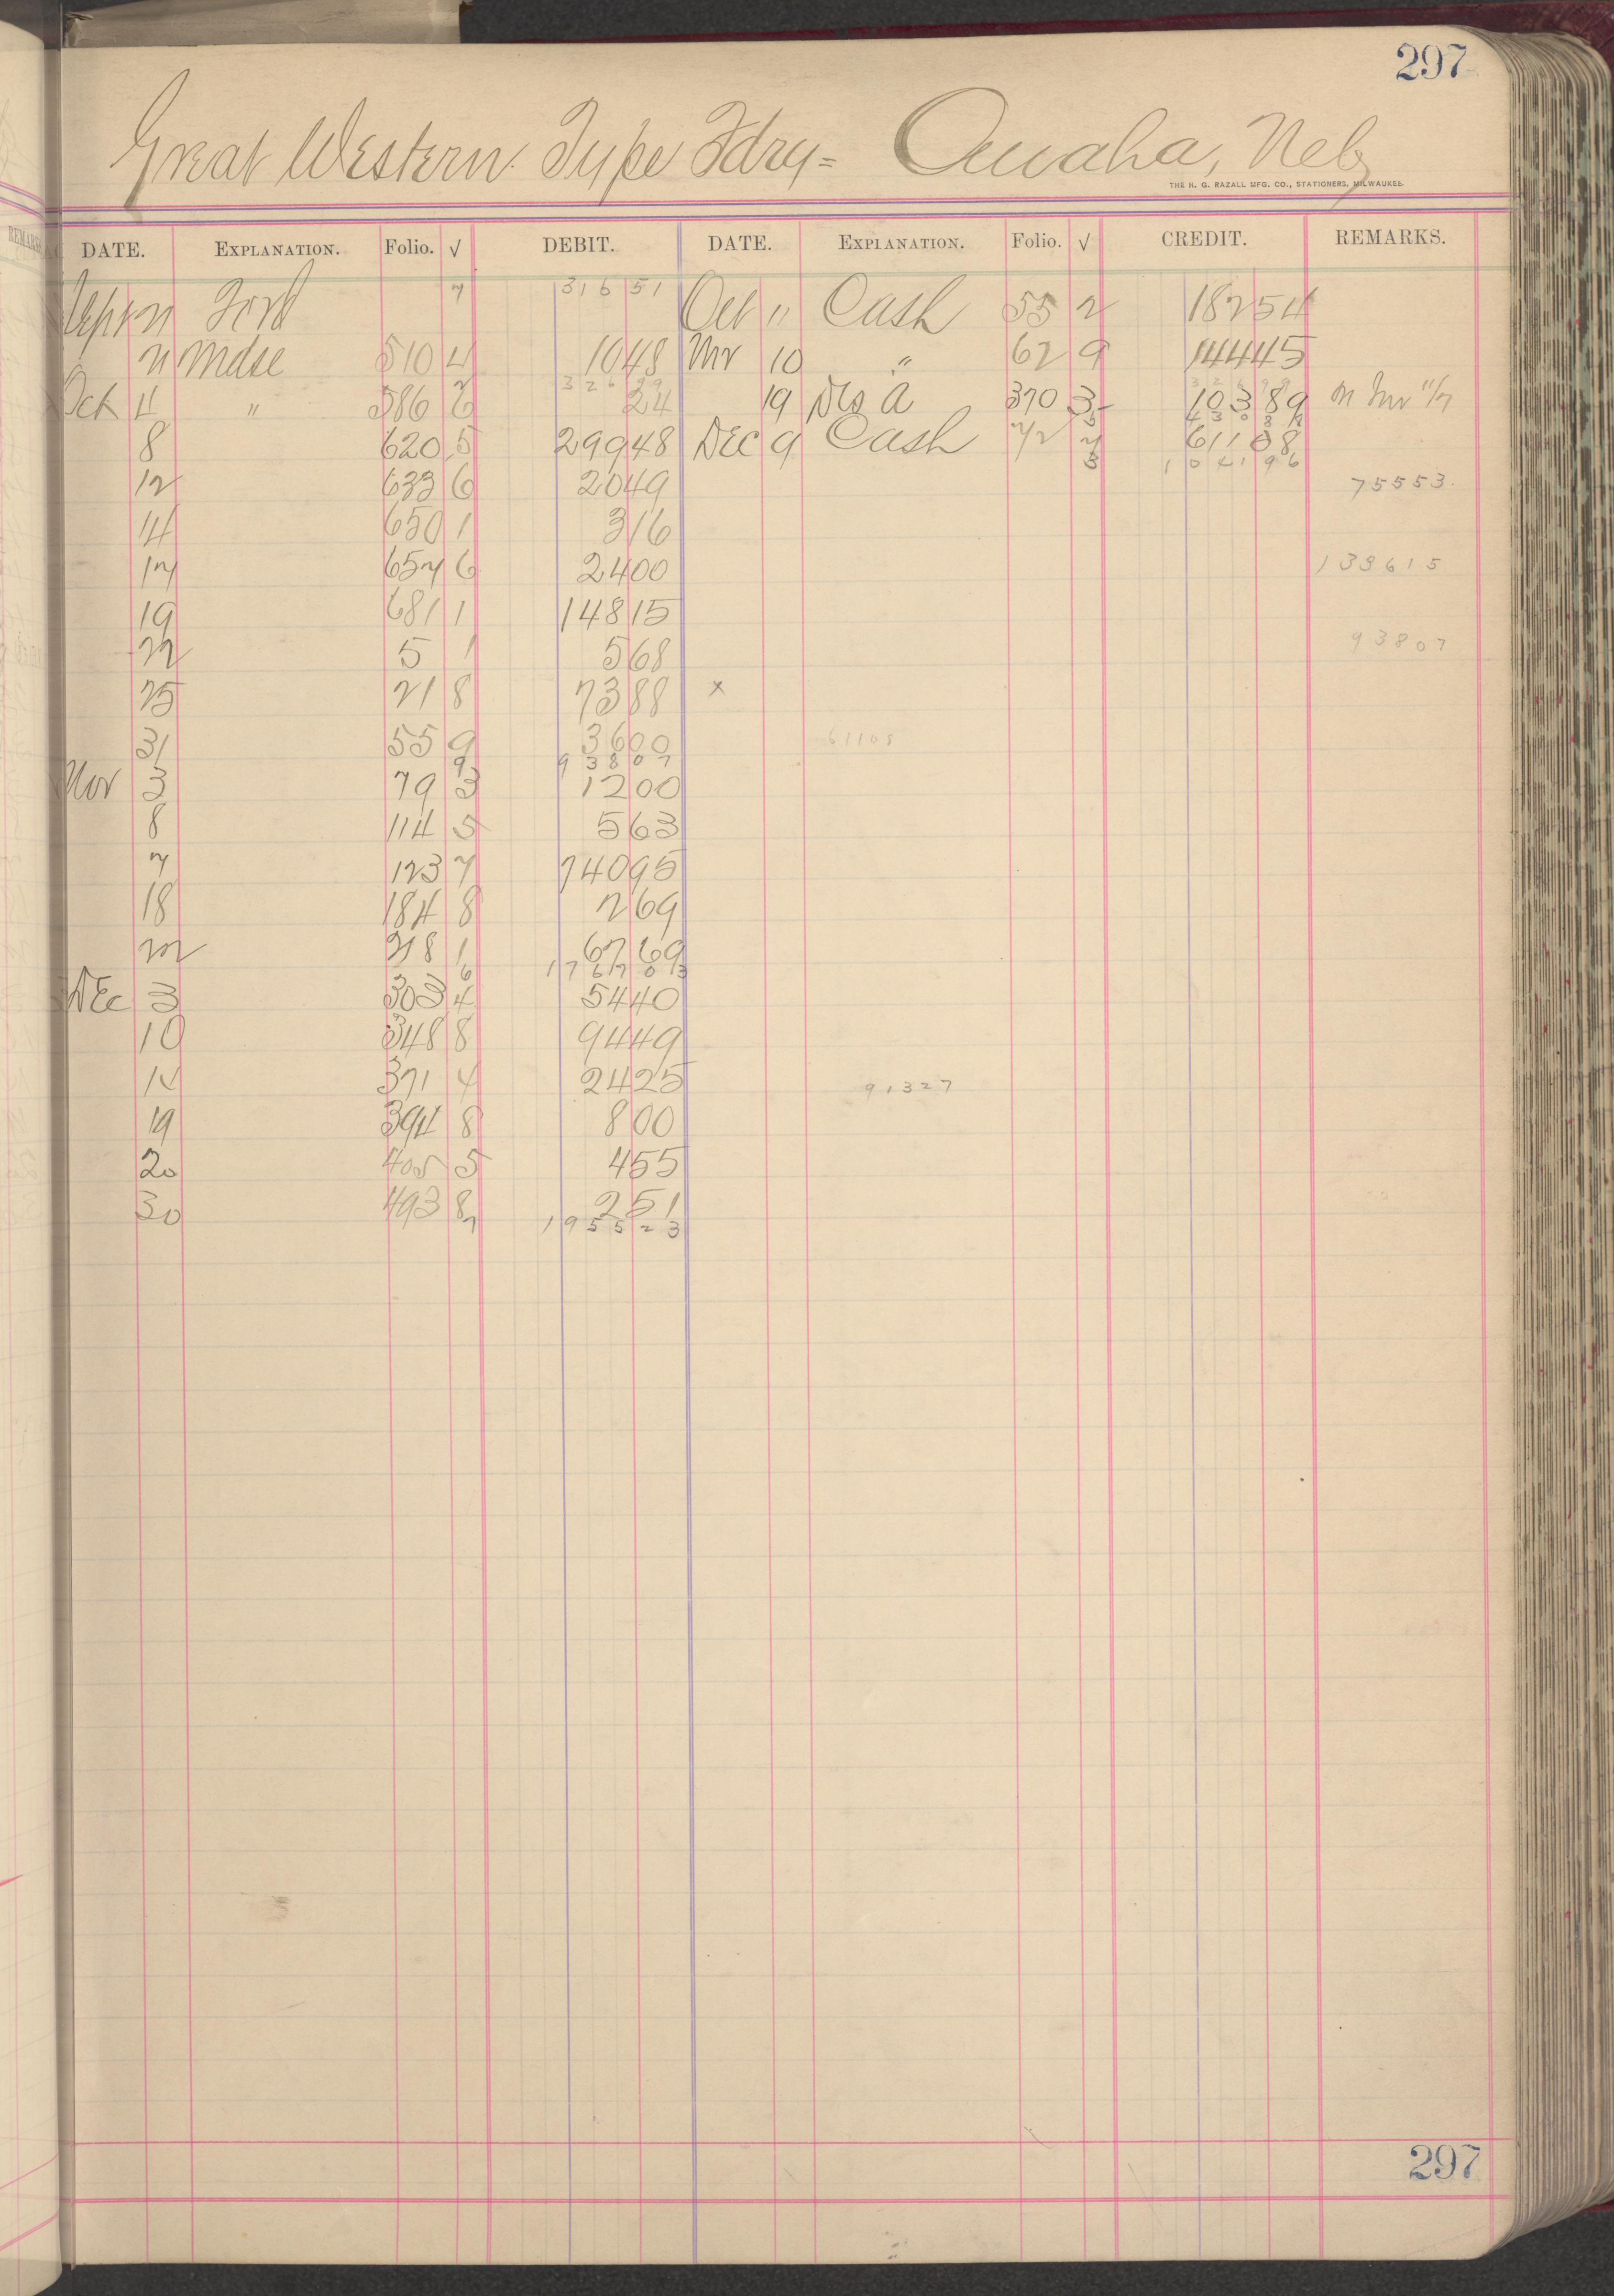 297
Great Western Type Fdry= Omaha, Neb
THE H. G. RAZALL MFG. CO., STATIONERS, MILWAUKEE.
DATE. EXPLANATION. Folio. √ DEBIT. DATE. EXPLANATION. Folio. √ CREDIT. REMARKS.
Ford 7 316 51 Oct " Cash 55 2 182 54
Mdse 510 4 10 48 Nov 10 " 62 9 144 45
326 99
Oct 4 " 586 6 24 19 370 3 103 89 Inv 11/7
430 88
8 620 5 299 48 Dec 9 Cash 72 7 611 08
3 1041 96
12 633 6 20 49 755 53
14 650 1 3 16
17 657 6 24 00 1396 15
19 681 1 148 15
22 5 1 5 68 938 07
25 21 8 73 88 x
31 55 9 36 00 611 08
9 938 07
Nov 3 79 3 12 00
8 114 5 5 63
7 123 7 740 95
18 184 8 2 69
22 218 1 67 69
6 1767 03
Dec 3 303 4 54 40
10 348 8 94 49
14 371 4 24 25 913 27
19 394 8 8 00
20 405 5 4 55
30 493 8 2 51
7 1955 23
297